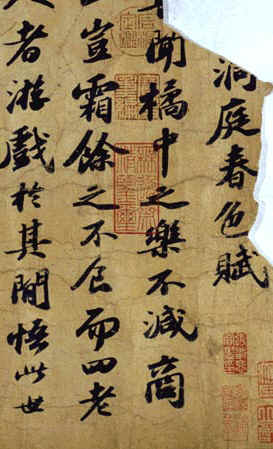 洞庭春色賦
聞橘中之樂不減商
豈霜餘之不食而四老
人者游戲於其間悟此世